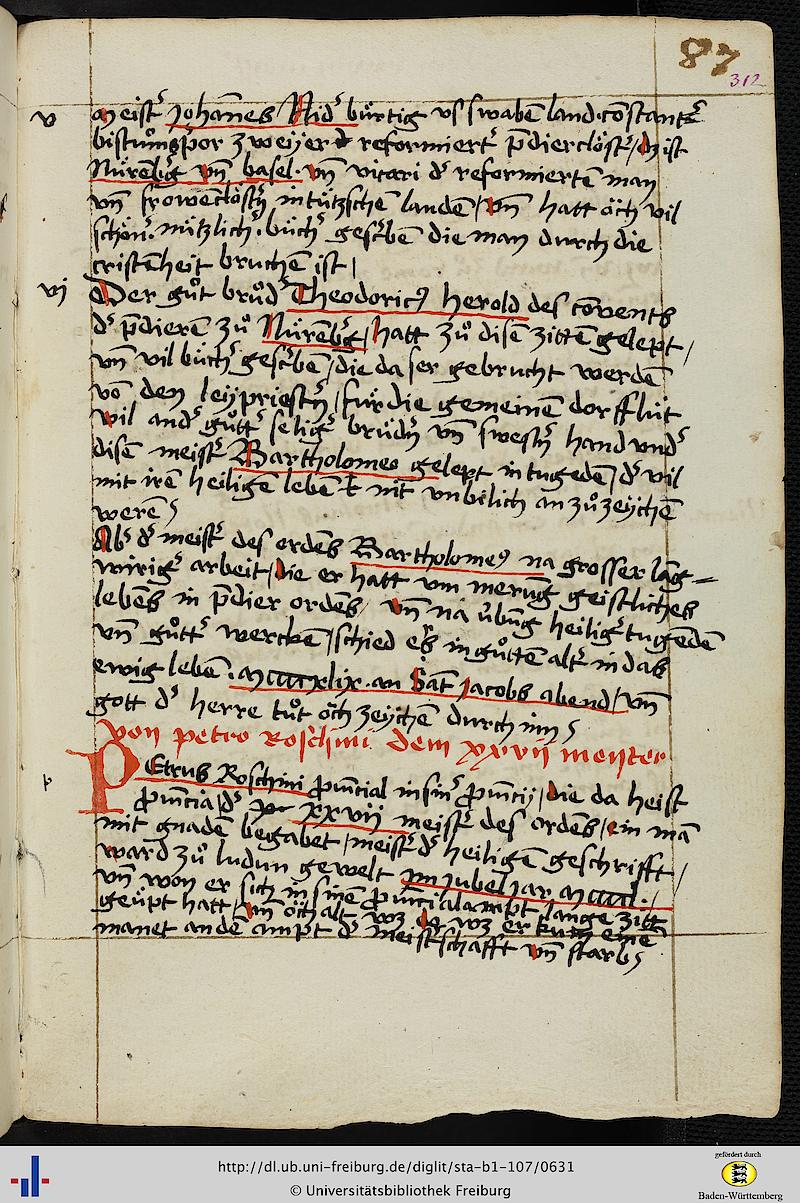 87
312
v meist͛ Johan̄es Nid͛ bürtig vs swabē land, costantz͛
bistūms, por zweyer reformiert͛ p̄dierclöst͛, dz ist
Nürēb͛g vn̄ basel. vn̄ vicari d͛ reformierten man
vn̄ frowēclöst͛n in tützschē landē, vn̄ hatt öch vil
schön͛. nützlich͛. büch͛ gescͥbē die man durch die
cristēheit bruchē ist,
vj Der gůt brůd͛ Theodoricꝰ herold des cōvents
d͛ p̄dieren zů Nürēb͛g, hatt zů disē zittē gelept,
vn̄ vil büch͛ gescͥbē, die da ser gebrucht werdē
vō den leypriest͛n, für die gemeinen dorfflüt
vil and͛ gůtt͛ selig͛ brüd͛n vn̄ swest͛n hand vnd͛
disem meist͛ Bartholomeo gelept in tugēdē, d͛ vil
mit irē heiligen lebē nit vnbilich an zů zeychē
werē
Ab͛ d͛ meist͛ des ordēs Bartholomeꝰ na grosser lāg=
wirig͛ arbeit, die er hatt vm merūg geistliches
lebēs in p̄dier ordēs, vn̄ na übūg heilig͛ tugēdē
vn̄ gůtt͛ werckē, schied es in gůttē alt͛ in das
ewig lebē. mccccxlix. an sāt Jacobs abend, vn̄
gott d͛ herre tůt öch zeychē durch inn
von petro Roschini dem xxvii meyster
p PEtrus Roschini p͛uīcial in sin͛ p͛uīcij, die da heist
p͛uīcia, d͛ xxvii meist͛ des ordēs, ein mā
mit gnadē begabet, meist͛ d͛ heiligē geschrifft,
ward zů ludun gewelt im jubel jar mccccl.,
vn̄ won er sich in sinē p͛uīcialampt lange zitt
geüpt hatt, vn̄ öch alt wz, er kum einē
manet an dē ampt d͛ meist͛schafft vn̄ starb
http://dl.ub.uni-freiburg.de/diglit/sta-b1-107/0631
© Universitätsbibliothek Freiburg
gefördert durch
Baden-Württemberg